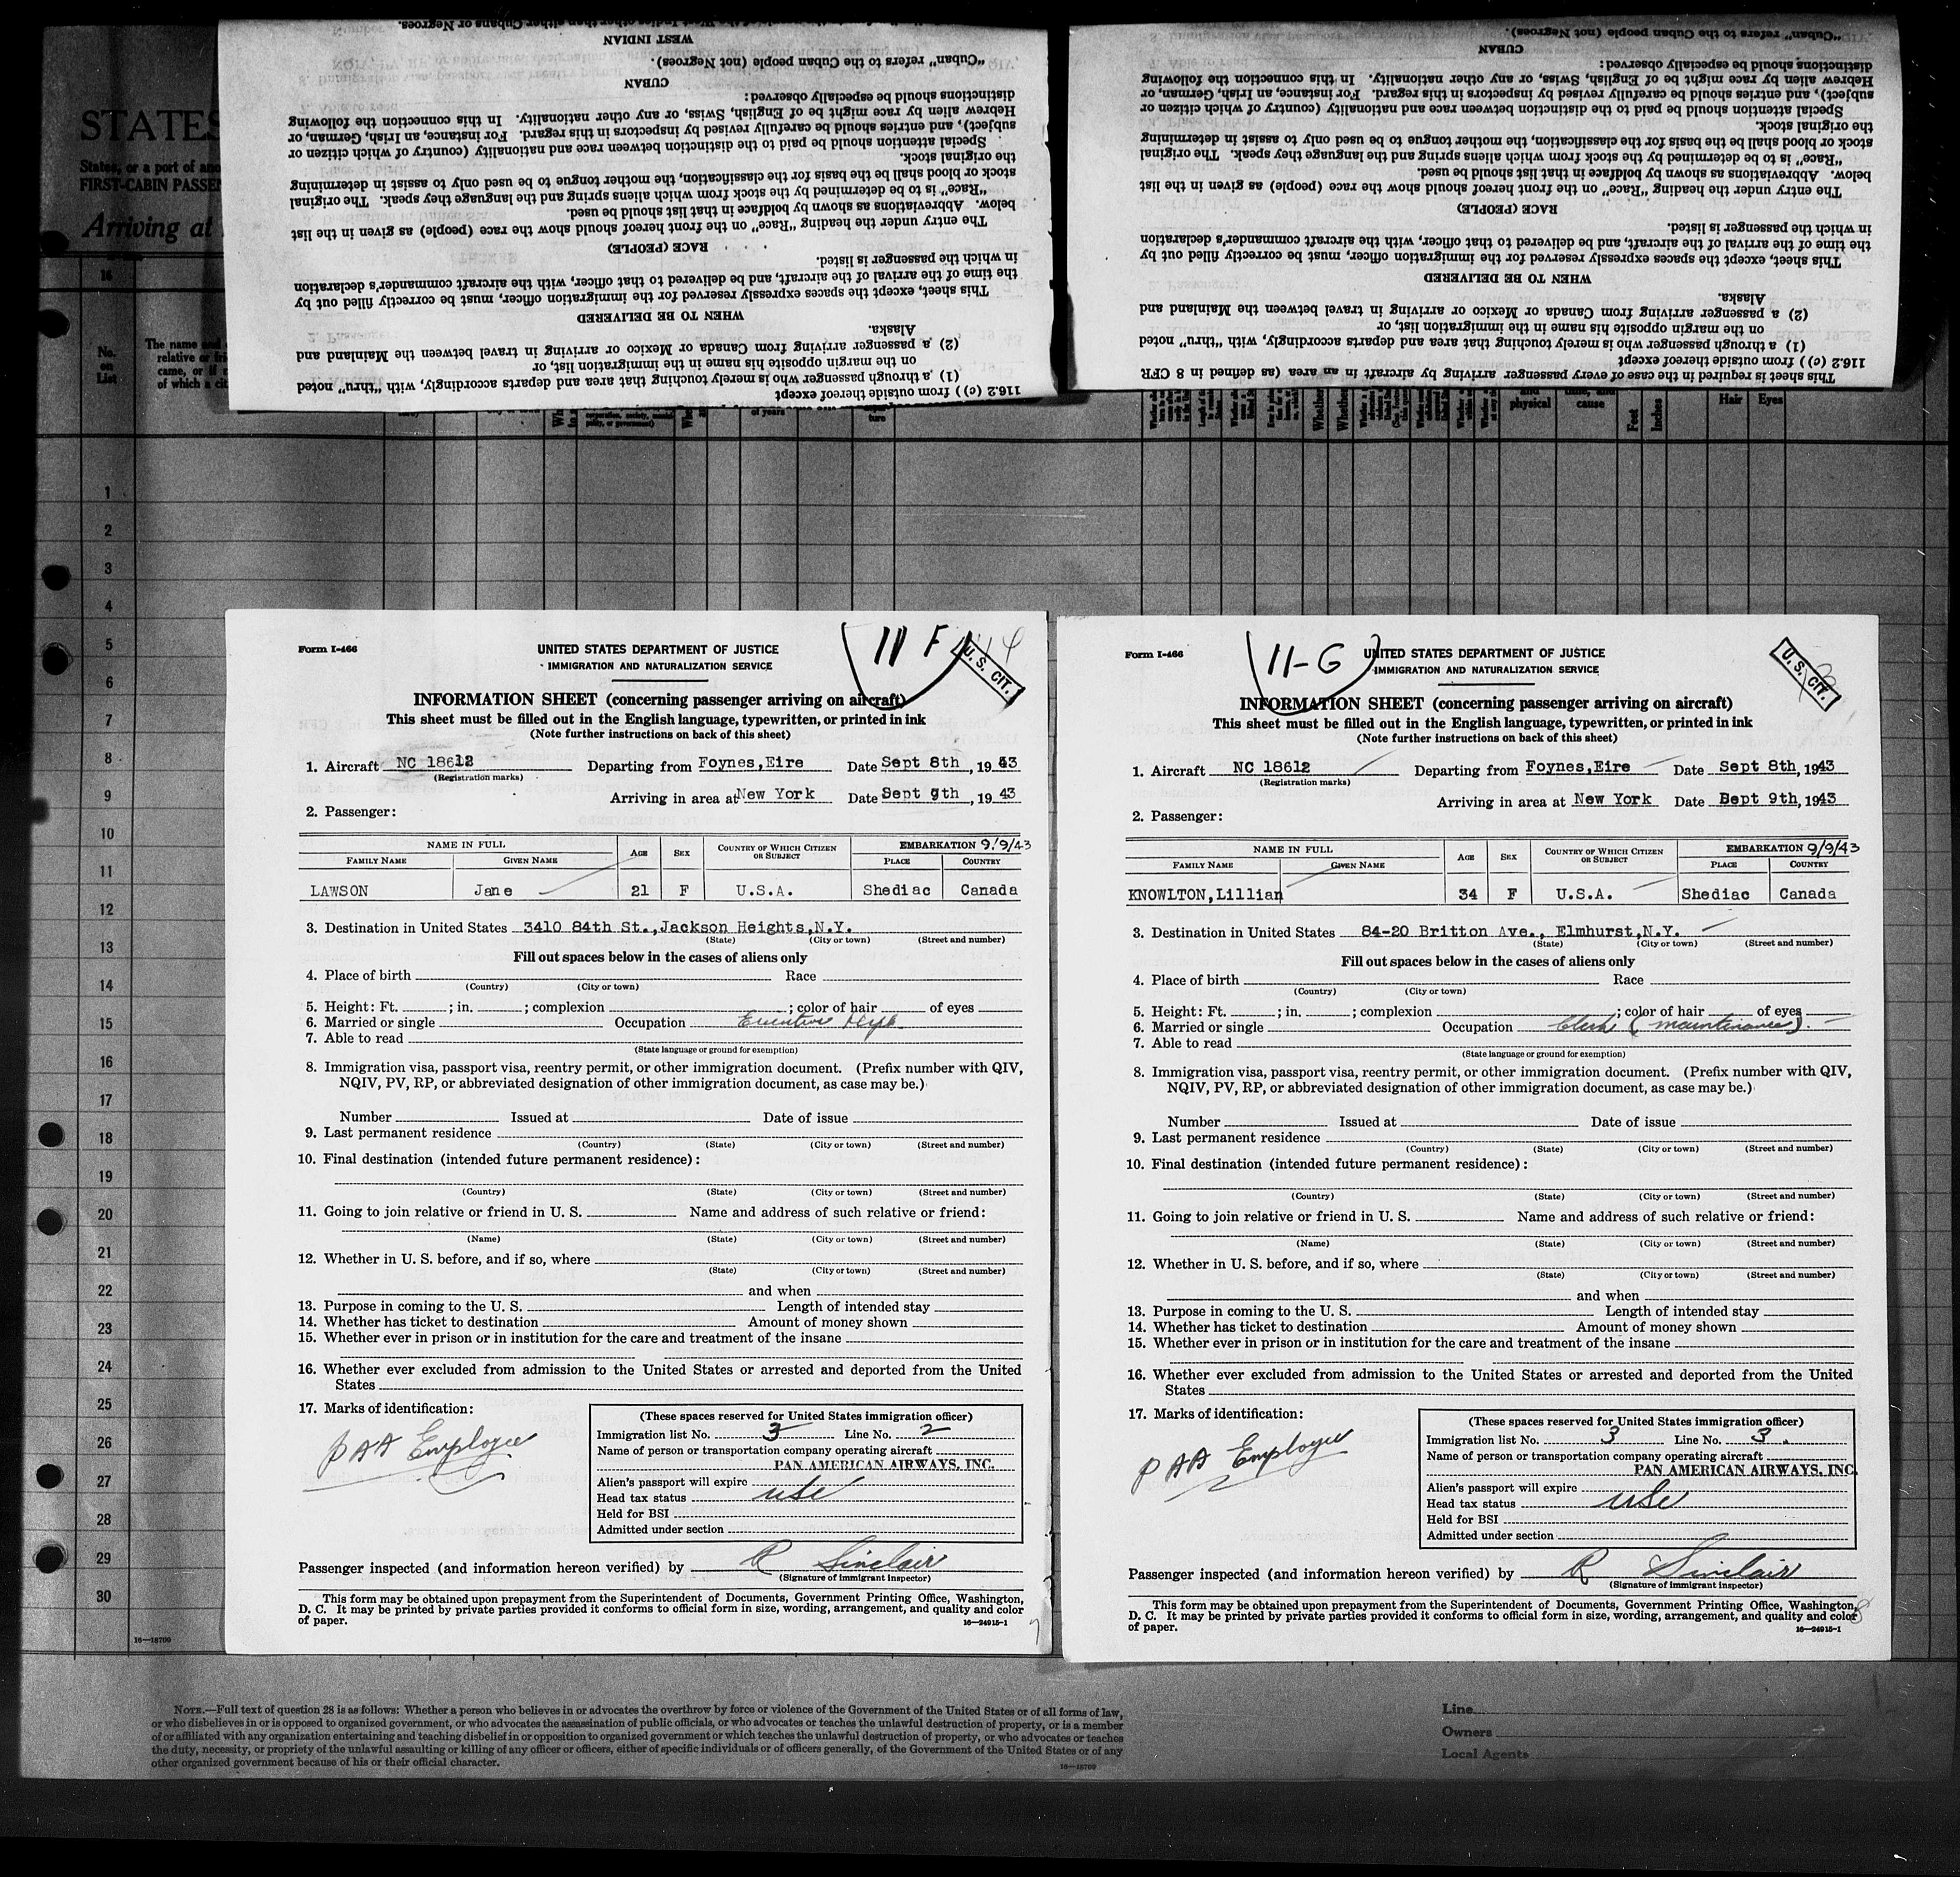 "Cuban" refers to the Cuban people (not Negroes).
WEST INDIAN
"Cuban" refers to the Cuban people (not Negroes).
CUBAN
distinctions should be especially observed:
Hebrew alien by race might be of English, Swiss, or any other nationality. In this connection the following
subject), and entries should be carefully revised by inspectors in this regard. For instance, an Irish, German, or
Special attention should be paid to the distinction between race and nationality (country of which citizen or
the original stock.
stock or blood shall be the basis for the classification, the mother tongue to be used only to assist in determining
"Race" is to be determined by the stock from which aliens spring and the language they speak. The original
below. Abbreviations as shown by boldface in that list should be used.
The entry under the heading "Race" on the front hereof should show the race (people) as given in the list
RACE (PEOPLE)
in which the passenger is listed.
the time of the arrival of the aircraft, and be delivered to that officer, with the aircraft commander's declaration
This sheet, except the spaces expressly reserved for the immigration officer, must be correctly filled out by
WHEN TO BE DELIVERED
Alaska.
(2) a passenger arriving from Canada or Mexico or arriving in travel between the Mainland and
on the margin opposite his name in the immigration list, or
(1) a through passenger who is merely touching that area and departs accordingly, with "thru" noted
116.2 (c) ) from outside thereof except
CUBAN
distinctions should be especially observed:
Hebrew alien by race might be of English, Swiss, or any other nationality. In this connection the following
subject), and entries should be carefully revised by inspectors in this regard. For instance, an Irish, German, or
Special attention should be paid to the distinction between race and nationality (country of which citizen or
the original stock.
stock or blood shall be the basis for the classification, the mother tongue to be used only to assist in determining
"Race" is to be determined by the stock from which aliens spring and the language they speak. The original
below. Abbreviations as shown by boldface in that list should be used.
The entry under the heading "Race" on the front hereof should show the race (people) as given in the list
RACE (PEOPLE)
in which the passenger is listed.
the time of the arrival of the aircraft, and be delivered to that officer, with the aircraft commander's declaration
This sheet, except the spaces expressly reserved for the immigration officer, must be correctly filled out by
WHEN TO BE DELIVERED
Alaska.
(2) a passenger arriving from Canada or Mexico or arriving in travel between the Mainland and
on the margin opposite his name in the immigration list, or
(1) a through passenger who is merely touching that area and departs accordingly, with "thru" noted
116.2 (c) ) from outside thereof except
This sheet is required in the case of every passenger arriving by aircraft in an area (as defined in 8 CFR
STATES
States, or a port of
FIRST-CABIN PASSEN
Arriving at
16
No. on List
The name
relative or
came, or if
of which a
of years
physical
cause
Feet
Inches
Hair Eyes
1
2
3
4
5
6
7
8
9
10
11
12
13
14
15
16
17
18
19
20
21
22
23
24
25
26
27
28
29
30
16—18709
Form I-466
11 F
U. S. CIT.
UNITED STATES DEPARTMENT OF JUSTICE
IMMIGRATION AND NATURALIZATION SERVICE
INFORMATION SHEET (concerning passenger arriving on aircraft)
This sheet must be filled out in the English language, typewritten, or printed in ink
(Note further instructions on back of this sheet)
1. Aircraft NC 18612 Departing from Foynes,Eire Date Sept 8th, 1943
(Registration marks)
Arriving in area at New York Date Sept 9th, 1943
2. Passenger:
NAME IN FULL AGE SEX COUNTRY OF WHICH CITIZEN OR SUBJECT EMBARKATION 9/9/43
FAMILY NAME GIVEN NAME PLACE COUNTRY
LAWSON Jane 21 F U.S.A. Shediac Canada
3. Destination in United States 3410 84th St.,Jackson Heights,N.Y.
(State) (City or town) (Street and number)
Fill out spaces below in the cases of aliens only
4. Place of birth Race
(Country) (City or town)
5. Height: Ft. ; in. ; complexion ; color of hair of eyes
6. Married or single Occupation
7. Able to read
(State language or ground for exemption)
8. Immigration visa, passport visa, reentry permit, or other immigration document. (Prefix number with QIV,
NQIV, PV, RP, or abbreviated designation of other immigration document, as case may be.)
Number Issued at Date of issue
9. Last permanent residence
(Country) (State) (City or town) (Street and number)
10. Final destination (intended future permanent residence):
(Country) (State) (City or town) (Street and number)
11. Going to join relative or friend in U. S. Name and address of such relative or friend:
(Name) (State) (City or town) (Street and number)
12. Whether in U. S. before, and if so, where
(State) (City or town) (Street and number)
and when
13. Purpose in coming to the U. S. Length of intended stay
14. Whether has ticket to destination Amount of money shown
15. Whether ever in prison or in institution for the care and treatment of the insane
16. Whether ever excluded from admission to the United States or arrested and deported from the United
States
17. Marks of identification:
PAA Employee
(These spaces reserved for United States immigration officer)
Immigration list No. 3 Line No. 2
Name of person or transportation company operating aircraft
PAN AMERICAN AIRWAYS, INC.
Alien's passport will expire
Head tax status USC
Held for BSI
Admitted under section
Passenger inspected (and information hereon verified) by R Sinclair
(Signature of immigrant inspector)
This form may be obtained upon prepayment from the Superintendent of Documents, Government Printing Office, Washington,
D. C. It may be printed by private parties provided it conforms to official form in size, wording, arrangement, and quality and color
of paper.
16—24915-1
Form I-466
11-G
U. S. CIT.
UNITED STATES DEPARTMENT OF JUSTICE
IMMIGRATION AND NATURALIZATION SERVICE
INFORMATION SHEET (concerning passenger arriving on aircraft)
This sheet must be filled out in the English language, typewritten, or printed in ink
(Note further instructions on back of this sheet)
1. Aircraft NC 18612 Departing from Foynes,Eire Date Sept 8th, 1943
(Registration marks)
Arriving in area at New York Date Bept 9th, 1943
2. Passenger:
NAME IN FULL AGE SEX COUNTRY OF WHICH CITIZEN OR SUBJECT EMBARKATION 9/9/43
FAMILY NAME GIVEN NAME PLACE COUNTRY
KNOWLTON,Lillian 34 F U.S.A. Shediac Canada
3. Destination in United States 84-20 Britton Ave., Elmhurst,N.Y.
(State) (City or town) (Street and number)
Fill out spaces below in the cases of aliens only
4. Place of birth Race
(Country) (City or town)
5. Height: Ft. ; in. ; complexion ; color of hair of eyes
6. Married or single Occupation Clerk (maintenance).
7. Able to read
(State language or ground for exemption)
8. Immigration visa, passport visa, reentry permit, or other immigration document. (Prefix number with QIV,
NQIV, PV, RP, or abbreviated designation of other immigration document, as case may be.)
Number Issued at Date of issue
9. Last permanent residence
(Country) (State) (City or town) (Street and number)
10. Final destination (intended future permanent residence):
(Country) (State) (City or town) (Street and number)
11. Going to join relative or friend in U. S. Name and address of such relative or friend:
(Name) (State) (City or town) (Street and number)
12. Whether in U. S. before, and if so, where
(State) (City or town) (Street and number)
and when
13. Purpose in coming to the U. S. Length of intended stay
14. Whether has ticket to destination Amount of money shown
15. Whether ever in prison or in institution for the care and treatment of the insane
16. Whether ever excluded from admission to the United States or arrested and deported from the United
States
17. Marks of identification:
PAA Employee
(These spaces reserved for United States immigration officer)
Immigration list No. 3 Line No. 3
Name of person or transportation company operating aircraft
PAN AMERICAN AIRWAYS, INC.
Alien's passport will expire
Head tax status USC
Held for BSI
Admitted under section
Passenger inspected (and information hereon verified) by R Sinclair
(Signature of immigrant inspector)
This form may be obtained upon prepayment from the Superintendent of Documents, Government Printing Office, Washington,
D. C. It may be printed by private parties provided it conforms to official form in size, wording, arrangement, and quality and color
of paper.
16—24915-1
NOTE.—Full text of question 28 is as follows: Whether a person who believes in or advocates the overthrow by force or violence of the Government of the United States or of all forms of law,
or who disbelieves in or is opposed to organized government, or who advocates the assassination of public officials, or who advocates or teaches the unlawful destruction of property, or is a member
of or affiliated with any organization entertaining and teaching disbelief in or opposition to organized government or which teaches the unlawful destruction of property, or who advocates or teaches
the duty, necessity, or propriety of the unlawful assaulting or killing of any officer or officers, either of specific individuals or of officers generally, of the Government of the United States or of any
other organized government because of his or their official character.
16—18709
Line
Owners
Local Agents